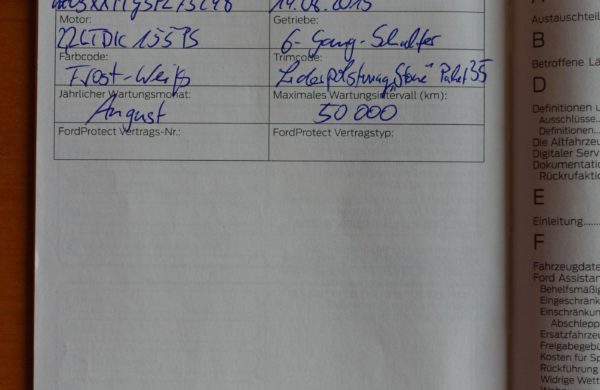 14.08.2015
Motor:
Getriebe:
2,2L TDIC 155 PS
6-Gang-Schalter
Farbcode:
Trimcode:
Frost-Weiß
Lederpolsterung "Stone" Paket 35
Jährlicher Wartungsmonat:
Maximales Wartungsintervall (km):
August
50 000
FordProtect Vertrags-Nr.:
FordProtect Vertragstyp:
Austauschteil
B
Betroffene Lä
D
Definitionen u
Ausschlüsse..
Definitionen...
Die Altfahrzeu
Digitaler Serv
Dokumentatio
Rückrufaktio
E
Einleitung......
F
Fahrzeugdate
Ford Assistan
Behelfsmäßig
Eingeschränk
Einschränkun
Abschlepp
Ersatzfahrzeu
Freigabegebü
Kosten für Sp
Rückführung
Widrige Wett